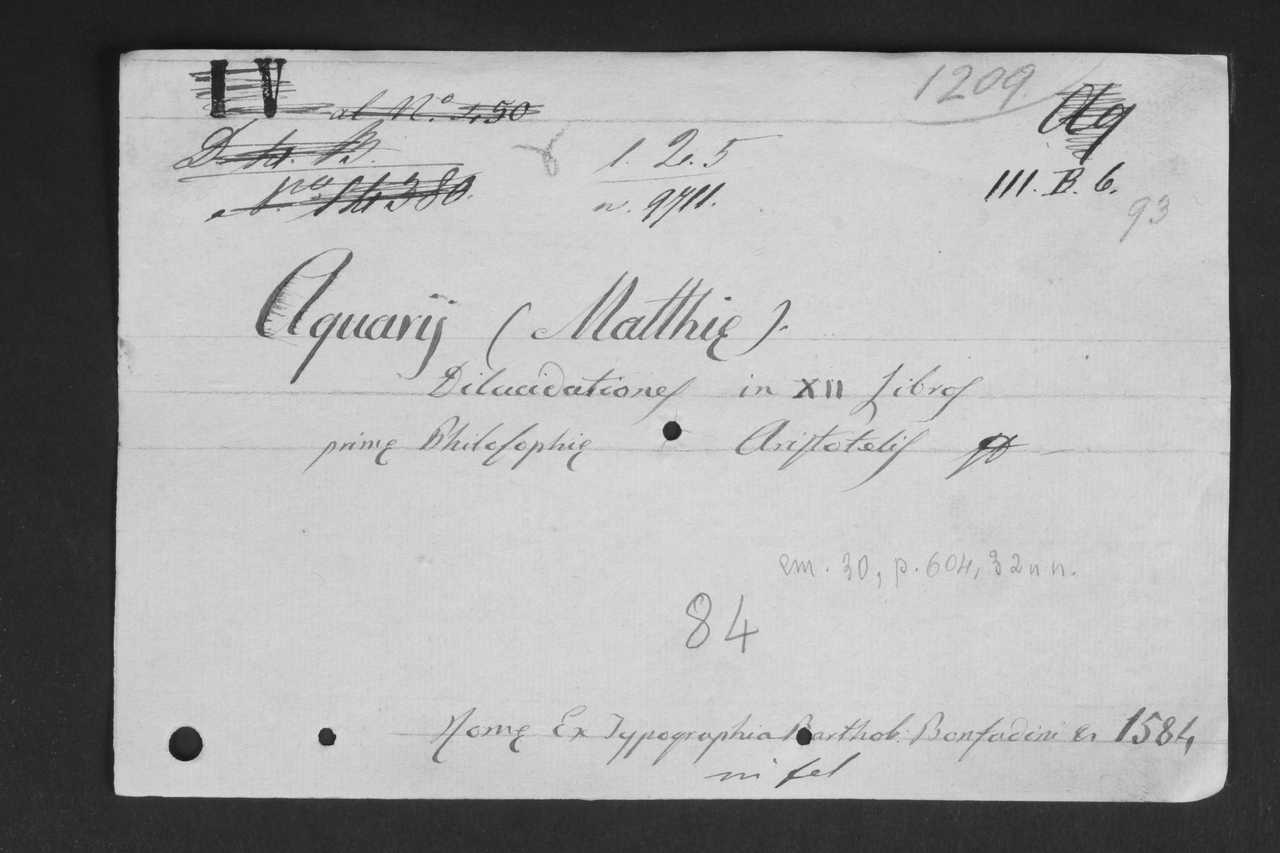 IV
al N.° 1,50
1209
Aq
D. 14. B.
1. 2. 5
n.° 14380.
n. 9711.
III. B. 6.
93
Aquarij (Matthię).
Dilucidationes in XII Libros
primę Philosophię Aristotelis
cm. 30, p. 604, 32 n n.
84
Romę Ex Typographia Barthol. Bonfadini & 1584
in fol